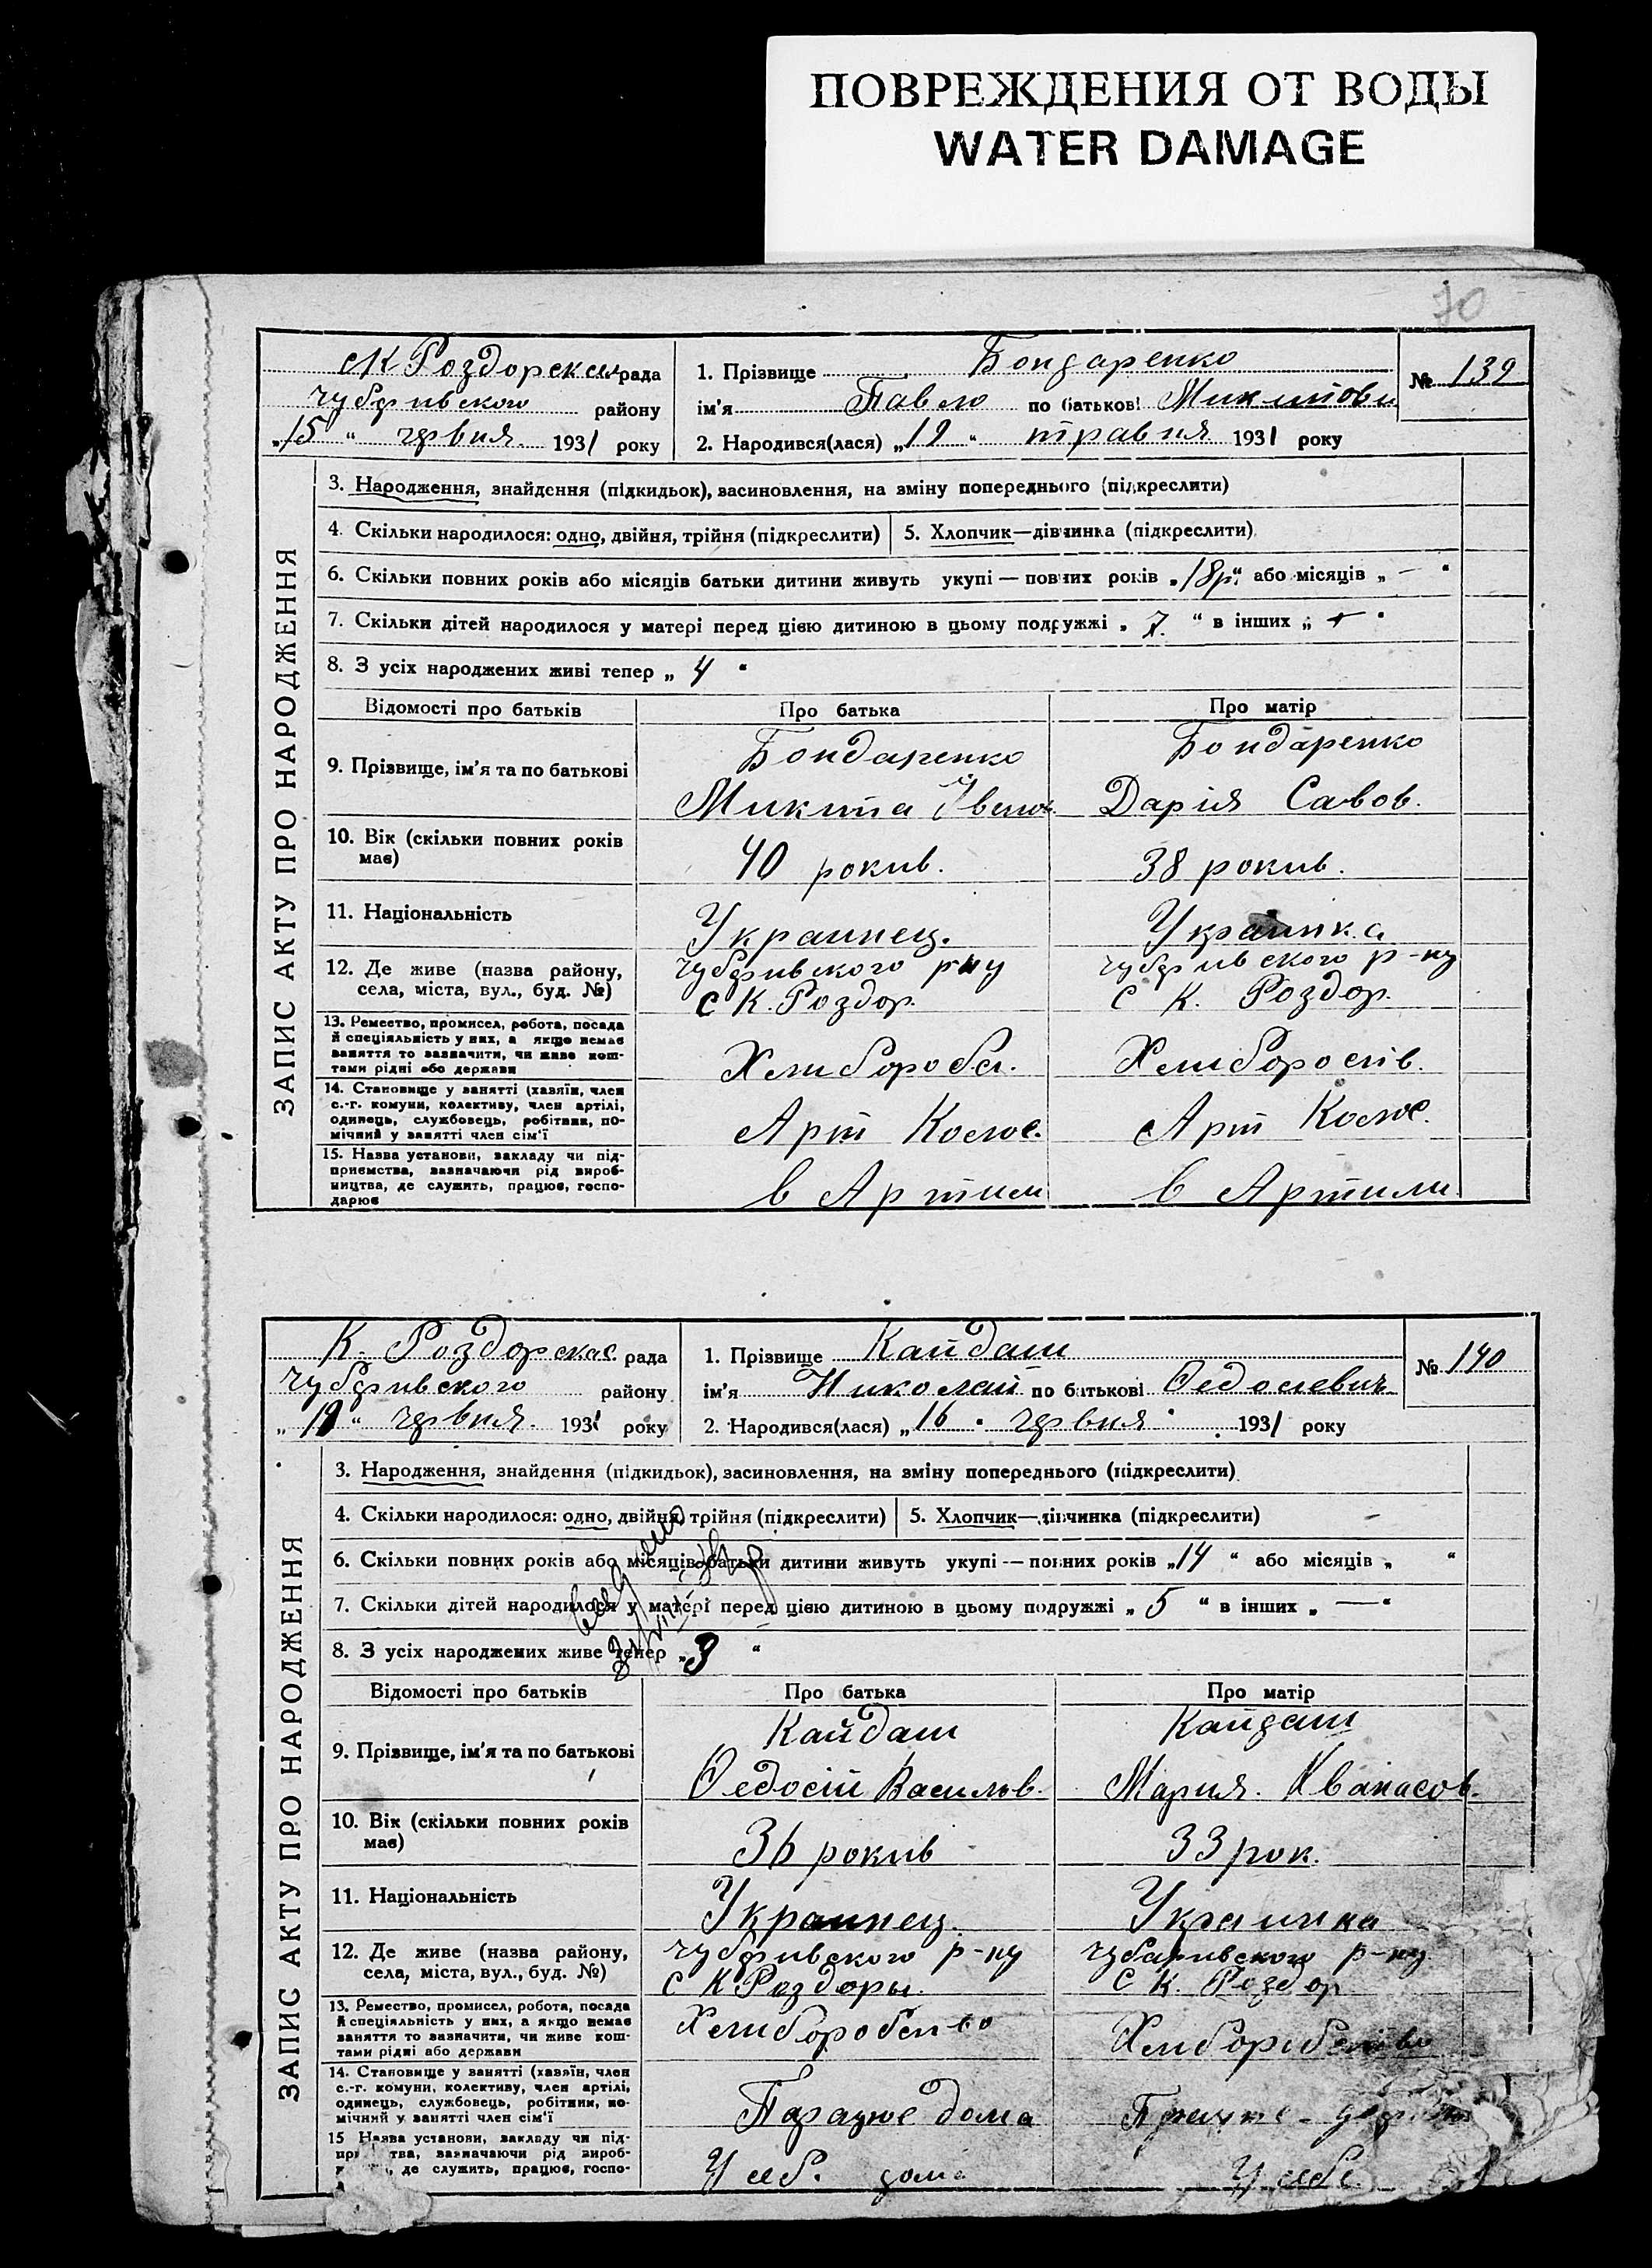 ПОВРЕЖДЕНИЯ ОТ ВОДЫ
WATER DAMAGE
70
ЗАПИС АКТУ ПРО НАРОДЖЕННЯ
К Роздорская рада
Чубарівского району
„15“ червня 1931 року
1. Прізвище Бондаренко
№ 139
ім'я Павло по батькові Микитови
2. Народився(лася) „19“ травня 1931 року
3. Народження, знайдення (підкидьок), васиновлення, на зміну попереднього (підкреслити)
4. Скільки народилося: одно, двійня, трійня (підкреслити) 5. Хлопчик—дівчинка (підкреслити)
6. Скільки повних років або місяців батьки дитини живуть укупі — повних років „18р“ або місяців „—“
7. Скільки дітей народилося у матері перед цією дитиною в цьому подружжі „7.“ в інших „
8. З усіх народжених живі тепер „4“
Відомості про батьків Про батька Про матір
9. Прізвище, ім'я та по батькові
Бондаренко Бондаренко
Микита Іванов Дарія Савов.
10. Вік (скільки повних років
має)
40 рокив. 38 рокив.
11. Національність
Украинец. Украинка
12. Де живе (назва району,
села, міста, вул., буд. №)
Чубарівского р-ну Чубарівского р-ну
с К. Роздор. с К. Роздор.
13. Ремество, промисел, робота, посада
й спеціяльність у них, а якщо немає
заняття то зазначити, чи живе кош-
тами рідні або держави
Хлиборобст. Хлиборобств.
14. Становище у занятті (хазяїн, член
с.-г. комуни, колективу, член артілі,
одинець, службовець, робітник, по-
мічний у занятті член сім'ї
Арт Арт
15. Назва установи, закладу чи під-
приємства, зазначаючи рід вироб-
ництва, де служить, працює, госпо-
дарює
в Артили в Артили
ЗАПИС АКТУ ПРО НАРОДЖЕННЯ
К. Роздорская рада
Чубарівского району
„19“ червня 1931 року
1. Прізвище Кайдаш
№ 140
ім'я Николай по батькові Федосиевич
2. Народився(лася) „16“ червня 1931 року
3. Народження, знайдення (підкидьок), васиновлення, на зміну попереднього (підкреслити)
4. Скільки народилося: одно, двійня, трійня (підкреслити) 5. Хлопчик—дівчинка (підкреслити)
6. Скільки повних років або місяців батьки дитини живуть укупі — повних років „14“ або місяців „ “
7. Скільки дітей народилося у матері перед цією дитиною в цьому подружжі „5“ в інших „—“
8. З усіх народжених живе тепер „3“
Відомості про батьків Про батька Про матір
9. Прізвище, ім'я та по батькові
Кайдаш Кайдаш
Федосій Васильв. Мария.
10. Вік (скільки повних років
має)
36 рокив 33 рок.
11. Національність
Украинец. Украинка
12. Де живе (назва району,
села, міста, вул., буд. №)
Чубарівского р-ну Чубарівского р-ну
с К Роздоры. с К. Роздор
13. Ремество, промисел, робота, посада
й спеціяльність у них, а якщо немає
заняття то зазначити, чи живе кош-
тами рідні або держави
Хлиборобство Хлиборобство
14. Становище у занятті (хазяїн, член
с.-г. комуни, колективу, член артілі,
одинець, службовець, робітник, по-
мічний у занятті член сім'ї
дома
15 Назва установи, закладу чи під-
приємства, зазначаючи рід вироб-
де служить, працює, госпо-
У себ. дома У себе